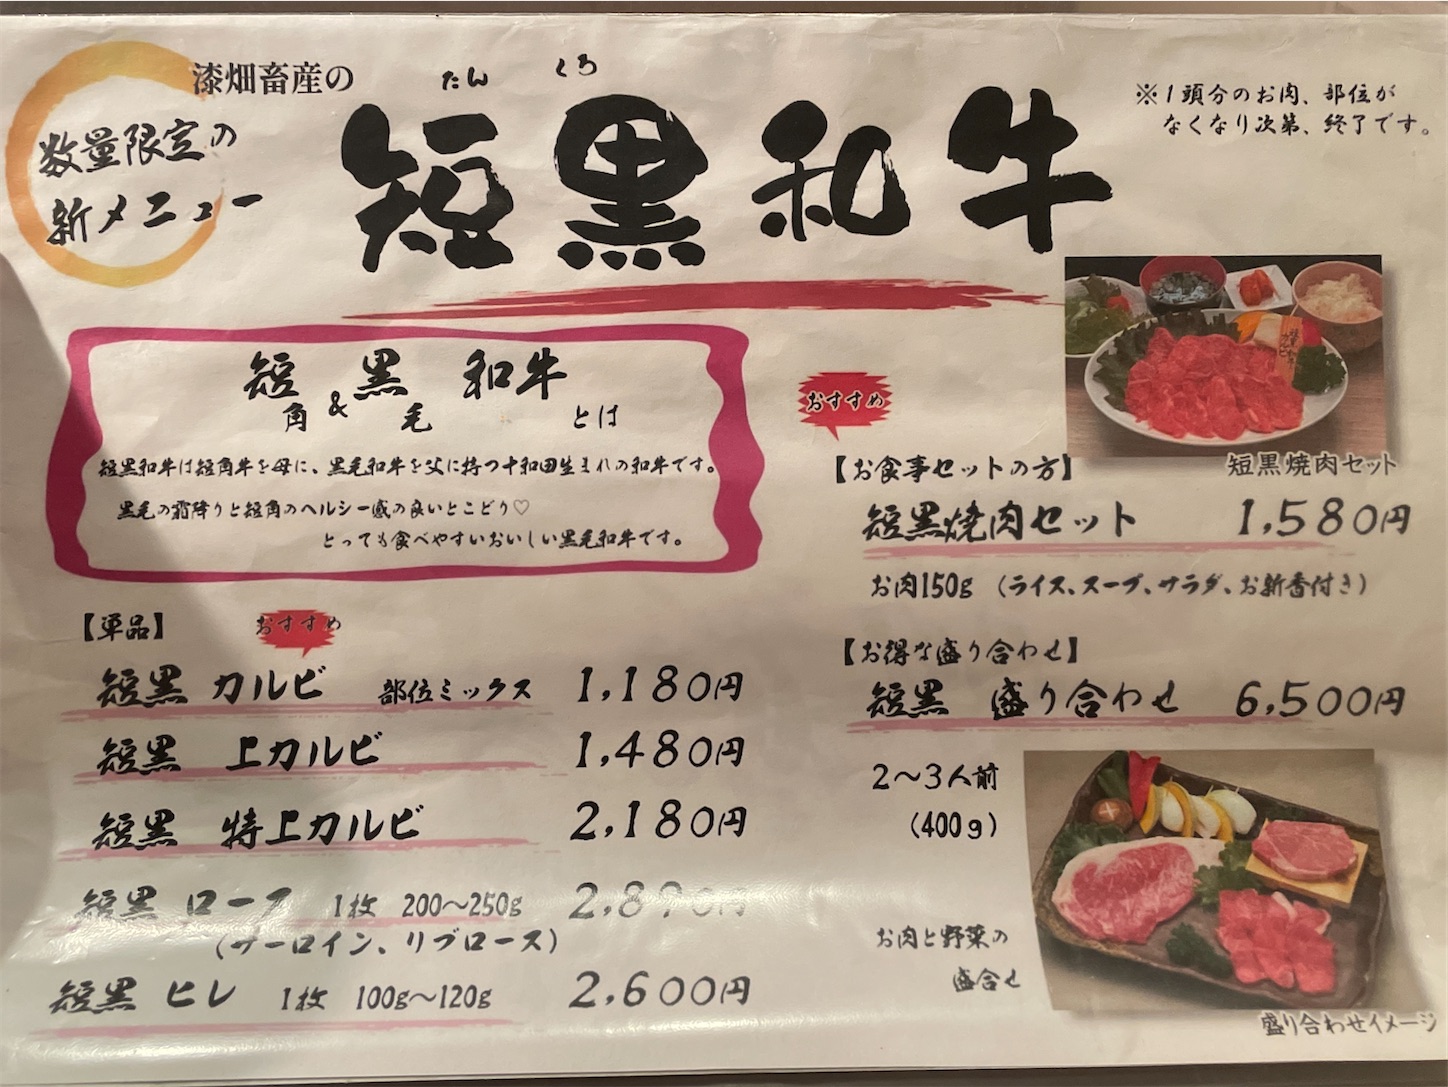 漆畑畜産の
数量限定の
新メニュー
たん くろ
短黒和牛
※1頭分のお肉、部位が
なくなり次第、終了です。
短 黒 和牛
角 & 毛 とは
短黒和牛は短角牛を母に、黒毛和牛を父に持つ十和田生まれの和牛です。
黒毛の霜降りと短角のヘルシー感の良いとこどり♡
とっても食べやすいおいしい黒毛和牛です。
【単品】
おすすめ
短黒 カルビ 部位ミックス 1,180円
短黒 上カルビ 1,480円
短黒 特上カルビ 2,180円
短黒 ロース 1枚 200～250g 2,890円
(サーロイン、リブロース)
短黒 ヒレ 1枚 100g～120g 2,600円
おすすめ
短黒焼肉セット
【お食事セットの方】
短黒焼肉セット 1,580円
お肉150g (ライス、スープ、サラダ、お新香付き)
【お得な盛り合わせ】
短黒 盛り合わせ 6,500円
2～3人前
(400g)
お肉と野菜の
盛合せ
盛り合わせイメージ